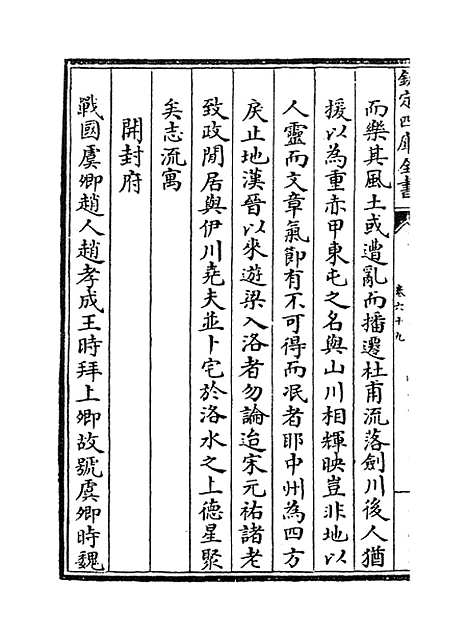 欽定四庫全書
卷六十九
而樂其風土或遭亂而播遷杜甫流落劍川後人猶
援以為重赤甲東屯之名與山川相輝映豈非地以
人靈而文章氣節有不可得而泯者耶中州為四方
戾止地漢晉以來遊梁入洛者勿論迨宋元祐諸老
致政閒居與伊川堯夫並卜宅於洛水之上德星聚
矣志流寓
開封府
戰國虞卿趙人趙孝成王時拜上卿故號虞卿時魏